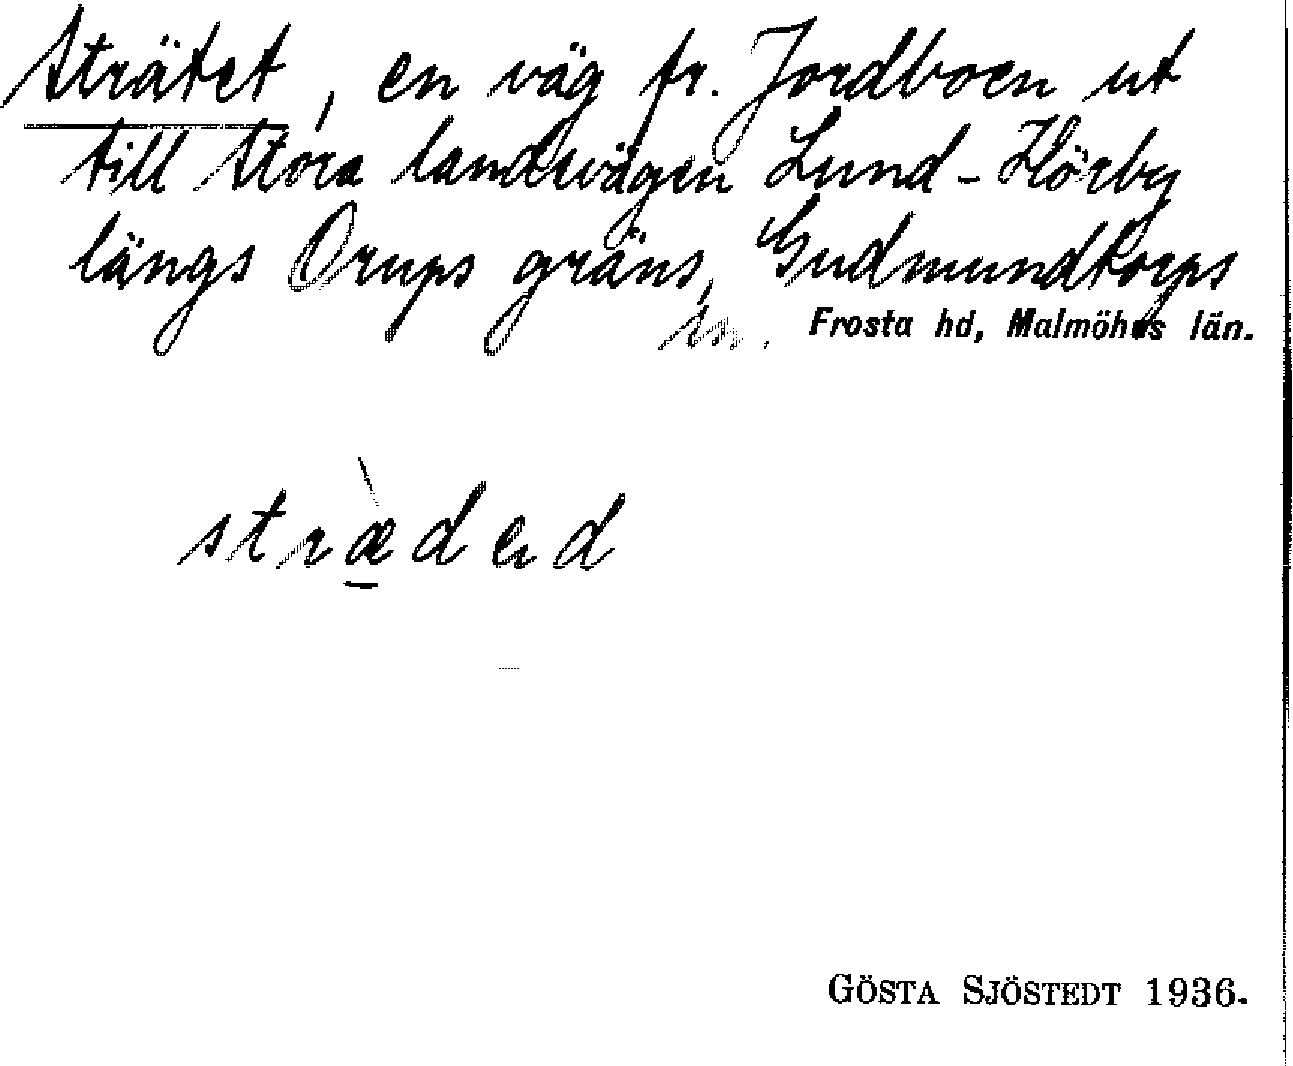 Strätet, en väg fr. Jordboen ut
till stora landsvägen Lund - Hörby
längs Orups gräns, Gudmundtorps
sn. Frosta hd, Malmöhus län.
stræ̠̀ded
GÖSTA SJÖSTEDT 1936.